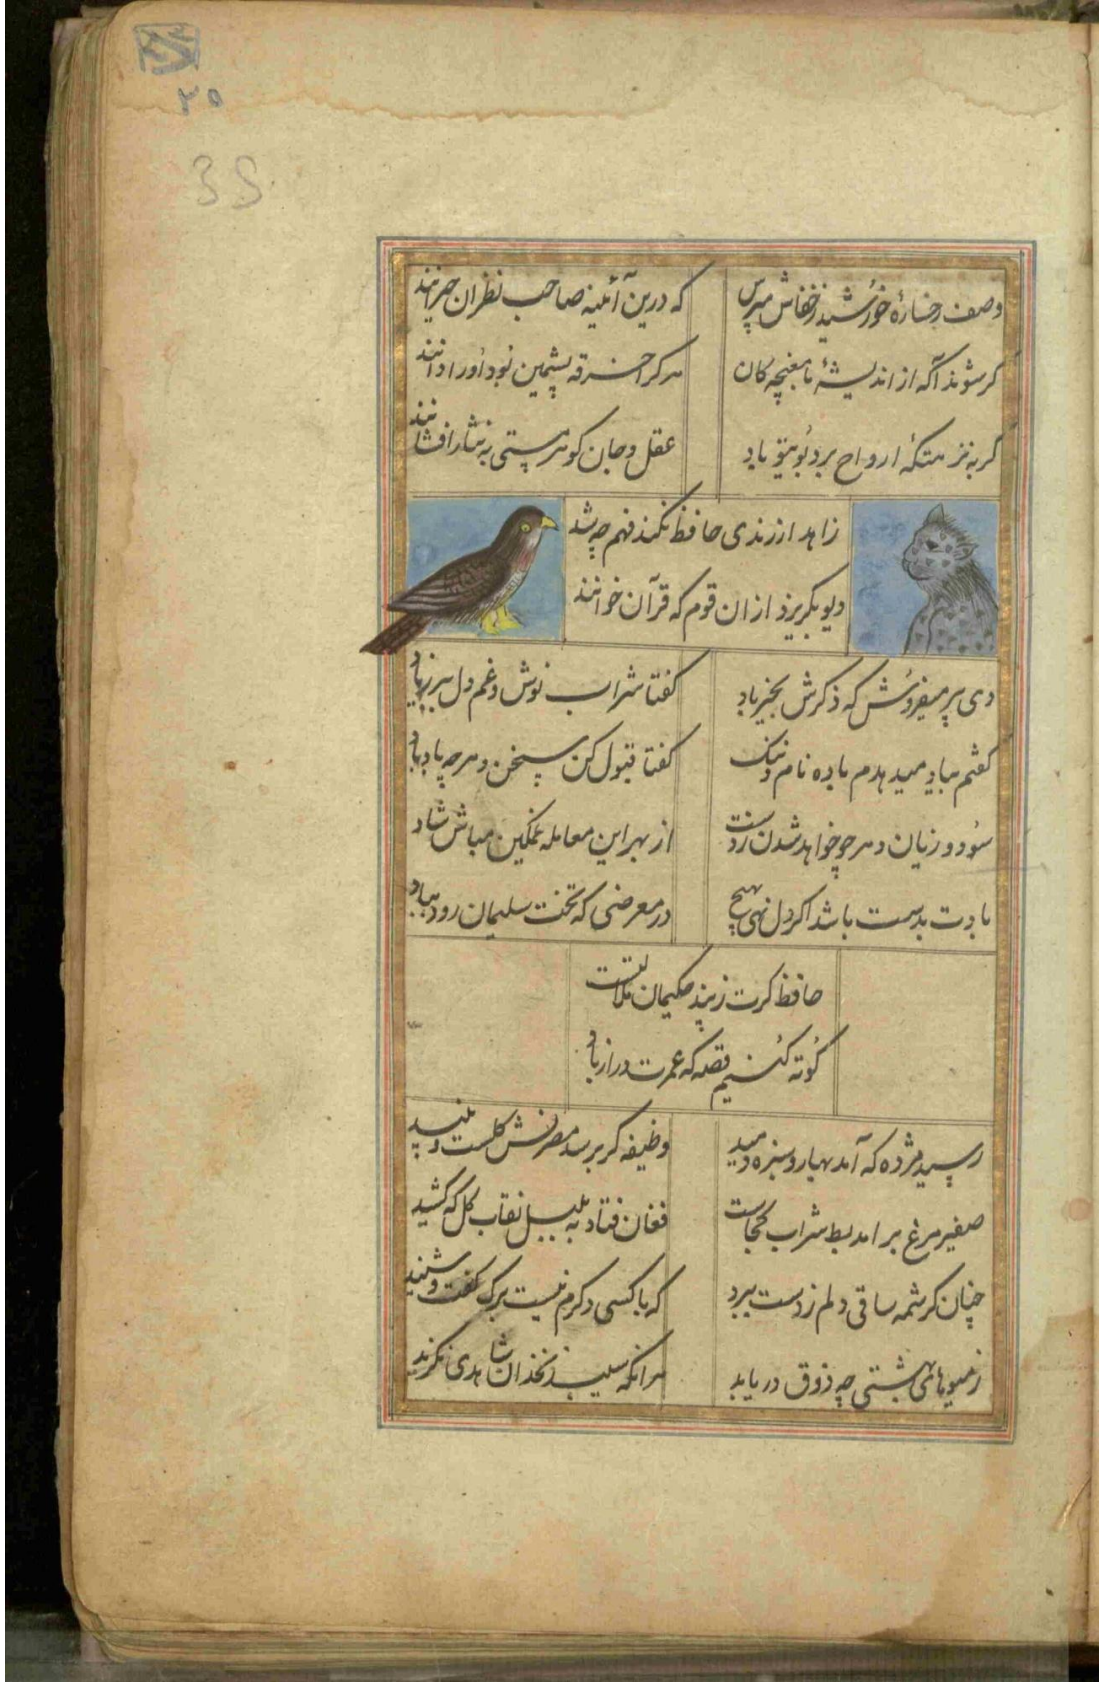 ۳۵
35
وصف رخسارهٔ خورشید ز خفاش مپرس
که درین آئینه صاحب نظران حیرانند
گر شوند آگه از اندیشهٔ ما مغبچه‌گان
هر که را خرقه پشمین بود او را دانند
گر به نزهتگه ارواح برد بوی تو باد
عقل و جان گوهر هستی به نثار افشانند
زاهد از رندی حافظ نکند فهم چه شد
دیو بگریزد از ان قوم که قرآن خوانند
دی پیر میفروش که ذکرش بخیر باد
گفتا شراب نوش و غم دل ببر ز یاد
گفتم بباد میدهدم باده نام و ننگ
گفتا قبول کن سخن و هر چه باد باد
سود و زیان و هر چو خواهد شدن ز دست
از بهر این معامله غمگین مباش شاد
بادت بدست باشد اگر دل نهی بهیچ
در معرضی که تخت سلیمان رود بباد
حافظ گرت ز پند حکیمان ملالتست
کوته کنیم قصه که عمرت دراز باد
رسید مژده که آمد بهار و سبزه دمید
وظیفه گر برسد مصرفش گلست و نبید
صفیر مرغ برآمد بط شراب کجاست
فغان فتاد به بلبل نقاب گل که کشید
چنان کرشمه ساقی دلم ز دست ببرد
که با کسی دگرم نیست برگ گفت و شنید
ز میوهای بهشتی چه ذوق دریابد
هر آنکه سیب زنخدان شاهدی نگزید